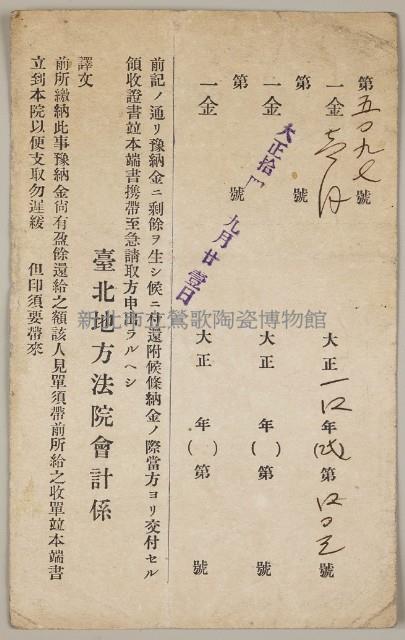 第五〇九七號
一金
大正一四年( )第 號
第 號
一金
大正 年( )第 號
大正拾四年九月廿壹日
第 號
一金
大正 年( )第 號
前記ノ通リ豫納金ニ剩餘ヲ生シ候ニ付還附候條納金ノ際當方ヨリ交付セル
領收證書竝本端書携帶至急請取方申出ラルヘシ
臺北地方法院會計係
譯文
前所繳納此事豫納金尙有盈餘還給之額該人見單須帶前所給之收單竝本端書
立到本院以便支取勿遲緩 但印須要帶來
新北市立鶯歌陶瓷博物館